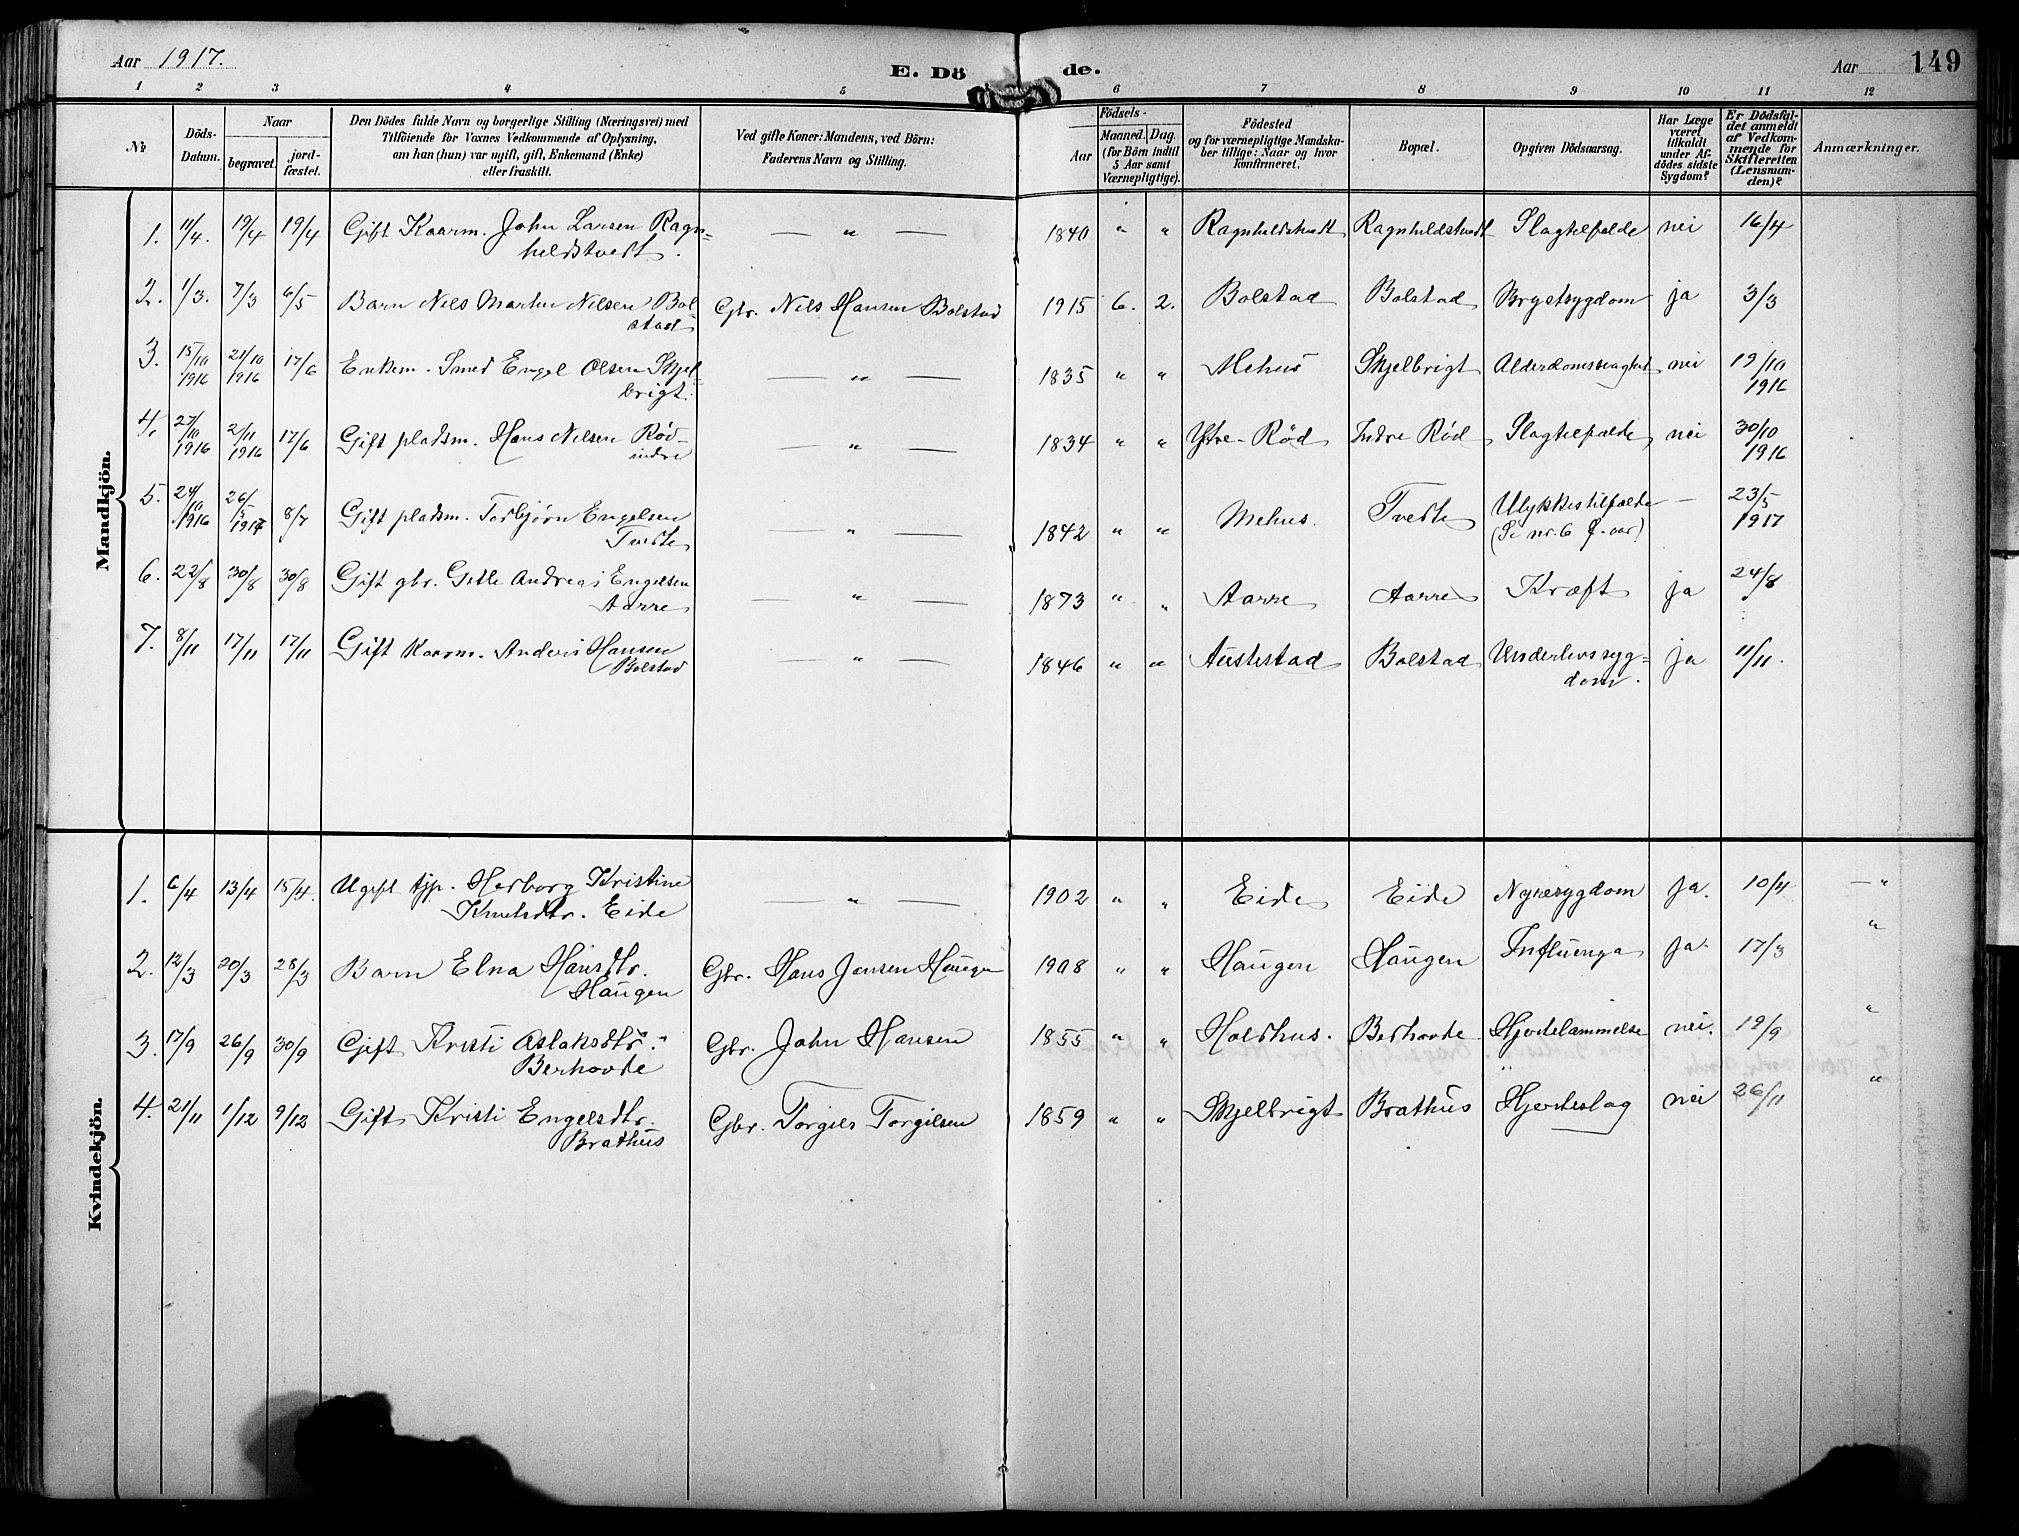 Aar 1917.
E. Dö de.
Aar
149
1 2 3 4 5 6 7 8 9 10 11 12
№
Döds-
Datum.
Naar
begravet.
jord-
fæstet.
Den Dödes fulde Navn og borgerlige Stilling (Næringsvei) med
Tilföiende for Voxnes Vedkommende af Oplysning,
om han (hun) var ugift, gift, Enkemand (Enke)
eller fraskilt.
Ved gifte Koner: Mandens, ved Börn:
Faderens Navn og Stilling.
Födsels-
Aar
Maaned. Dag.
(for Börn indtil
5 Aar samt
Værnepligtige).
Födested
og for værnepligtige Mandska-
ber tillige: Naar og hvor
konfirmeret.
Bopæl.
Opgiven Dödsaarsag.
Har Læge
været
tilkaldt
under Af-
dödes sidste
Sygdom?
Er Dödsfal-
det anmeldt
af Vedkom-
mende for
Skifteretten
(Lensman-
den)?
Anmærkninger.
Mandkjön.
1. 11/4. 19/4 19/4 Gift Kaarm. John Larsen Ragn= — " — 1840 " " Ragnhildstvedt Ragnhildstvedt Slagtilfælde nei 16/4
hildstvedt.
2. 1/3. 7/3 6/5 Barn Nils Martin Nilsen Bol- Gbr. Nils Hansen Bolstad 1915 6. 2. Bolstad Bolstad Brystsygdom ja 3/3
stad
3. 15/10 21/10 17/6 Enkem. Smed Engel Olsen Skjel- — " — 1835 " " Mehus Skjelbrigt Alderdomssvaghed nei 19/10
1916 1916 brigt. 1916
4. 27/10 2/11 17/6 Gift pladsm. Hans Nilsen Rød- — " — 1834 " " Ytre-Rød Indre Rød Slagtilfælde nei 30/10
1916 1916 indre 1916
5. 24/10 26/5 8/7 Gift pladsm. Torbjørn Engelsen — " — 1842 " " Mehus. Tveite Ulykkestilfælde — 23/5
1916 1917 Tveite (Se nr. 6 f. aar) 1917
6. 22/8 30/8 30/8 Gift gbr. Gitle Andreas Engelsen — " — 1873 " " Aarre Aarre Kræft ja 24/8
Aarre
7. 8/11 17/11 17/11 Gift Kaarm. Anders Hansen — " — 1846 " " Austestad Bolstad Underlivssyg= ja 11/11.
Bolstad dom.
Kvindekjön.
1. 6/4 13/4 15/4. Ugift tjp. Herborg Kristine — " — 1902 " " Eide Eide Nyresygdom ja. 10/4 — "
Knutsdtr. Eide
2. 12/3 20/3 28/3 Barn Elna Hansdtr. Gbr. Hans Jansen Haugen 1908 " " Haugen Haugen Influenza ja. 17/3 "
Haugen
3. 17/9 26/9 30/9 Gift Kristi Aslaksdtr. Gbr. John Hansen 1855 " " Holdhus. Berhovde Hjertelammelse nei. 19/9 "
Berhovde
4. 21/11 1/12 9/12 Gift Kristi Engelsdtr. Gbr. Torgils Torgilsen 1859 " " Skjelbrigt Brathus Hjerteslag nei 26/11 "
Brathus